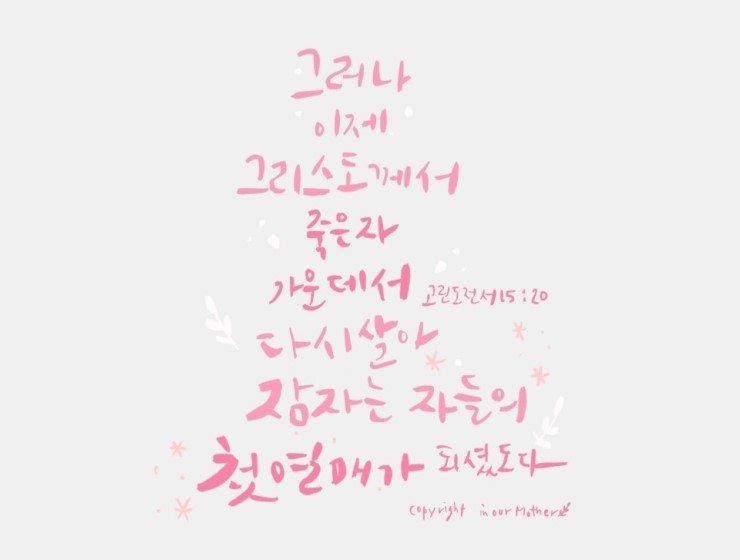 그러나
이제
그리스도께서
죽은자
가운데서 고린도전서15:20
다시살아
잠자는 자들의
첫열매가 되셨도다
copyright in our Mother